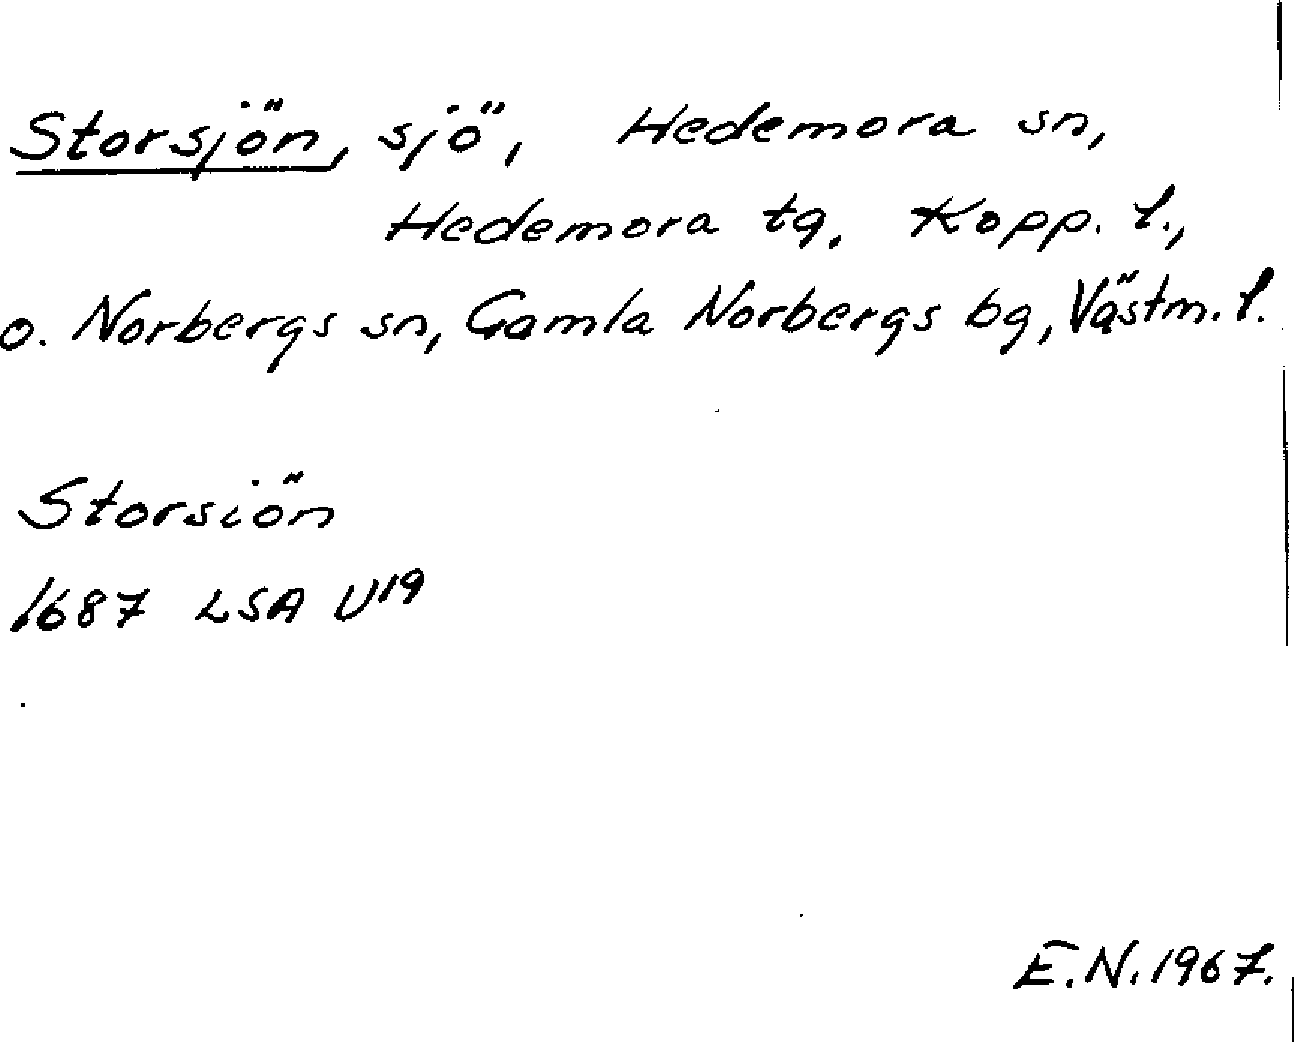 Storsjön, sjö, Hedemora sn,
Hedemora tg, Kopp. l.,
o. Norbergs sn, Gamla Norbergs bg, Västm. l.
Storsiön
1687 LSA U19
E.N. 1967.